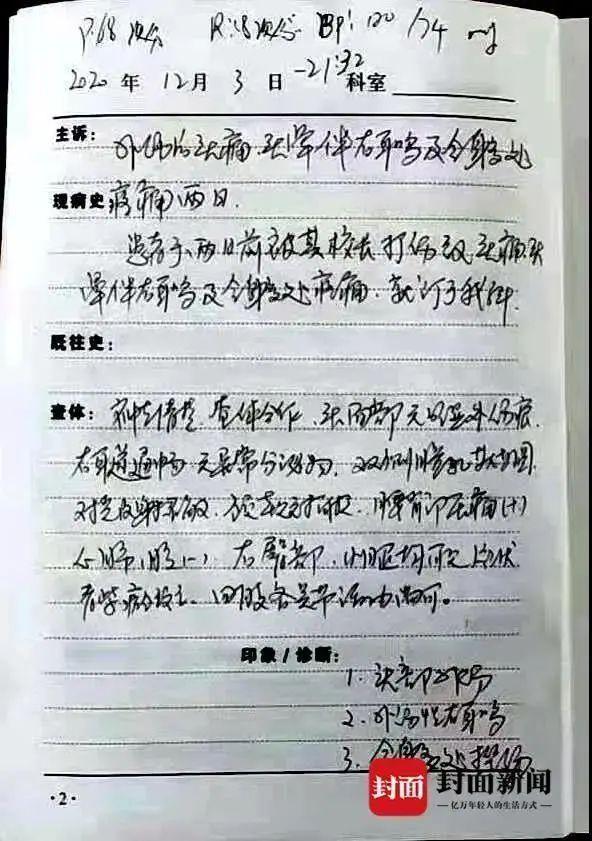 P:68次/分 R:18次/分 BP:120/74 mg
2020年12月3日-21:32科室
主诉：外伤后头痛头晕伴右耳鸣及全身多处
现病史：疼痛两日.
患者于两日前被其校长打伤致头痛头
晕伴右耳鸣及全身多处疼痛.就诊于我科.
既往史：
查体：神志清楚.查体合作.头面部无明显外伤痕
右耳道通畅无异常分泌物.双侧瞳孔等大等圆
对光反射灵敏.颈软无抵抗.腰背部压痛(+)
心肺腹(-)右臀部.
四肢各关节活动尚可。
印象/诊断：
1.头部外伤
2.外伤性右耳鸣
3.全身多处挫伤
·2·
封面 封面新闻
—亿万年轻人的生活方式—